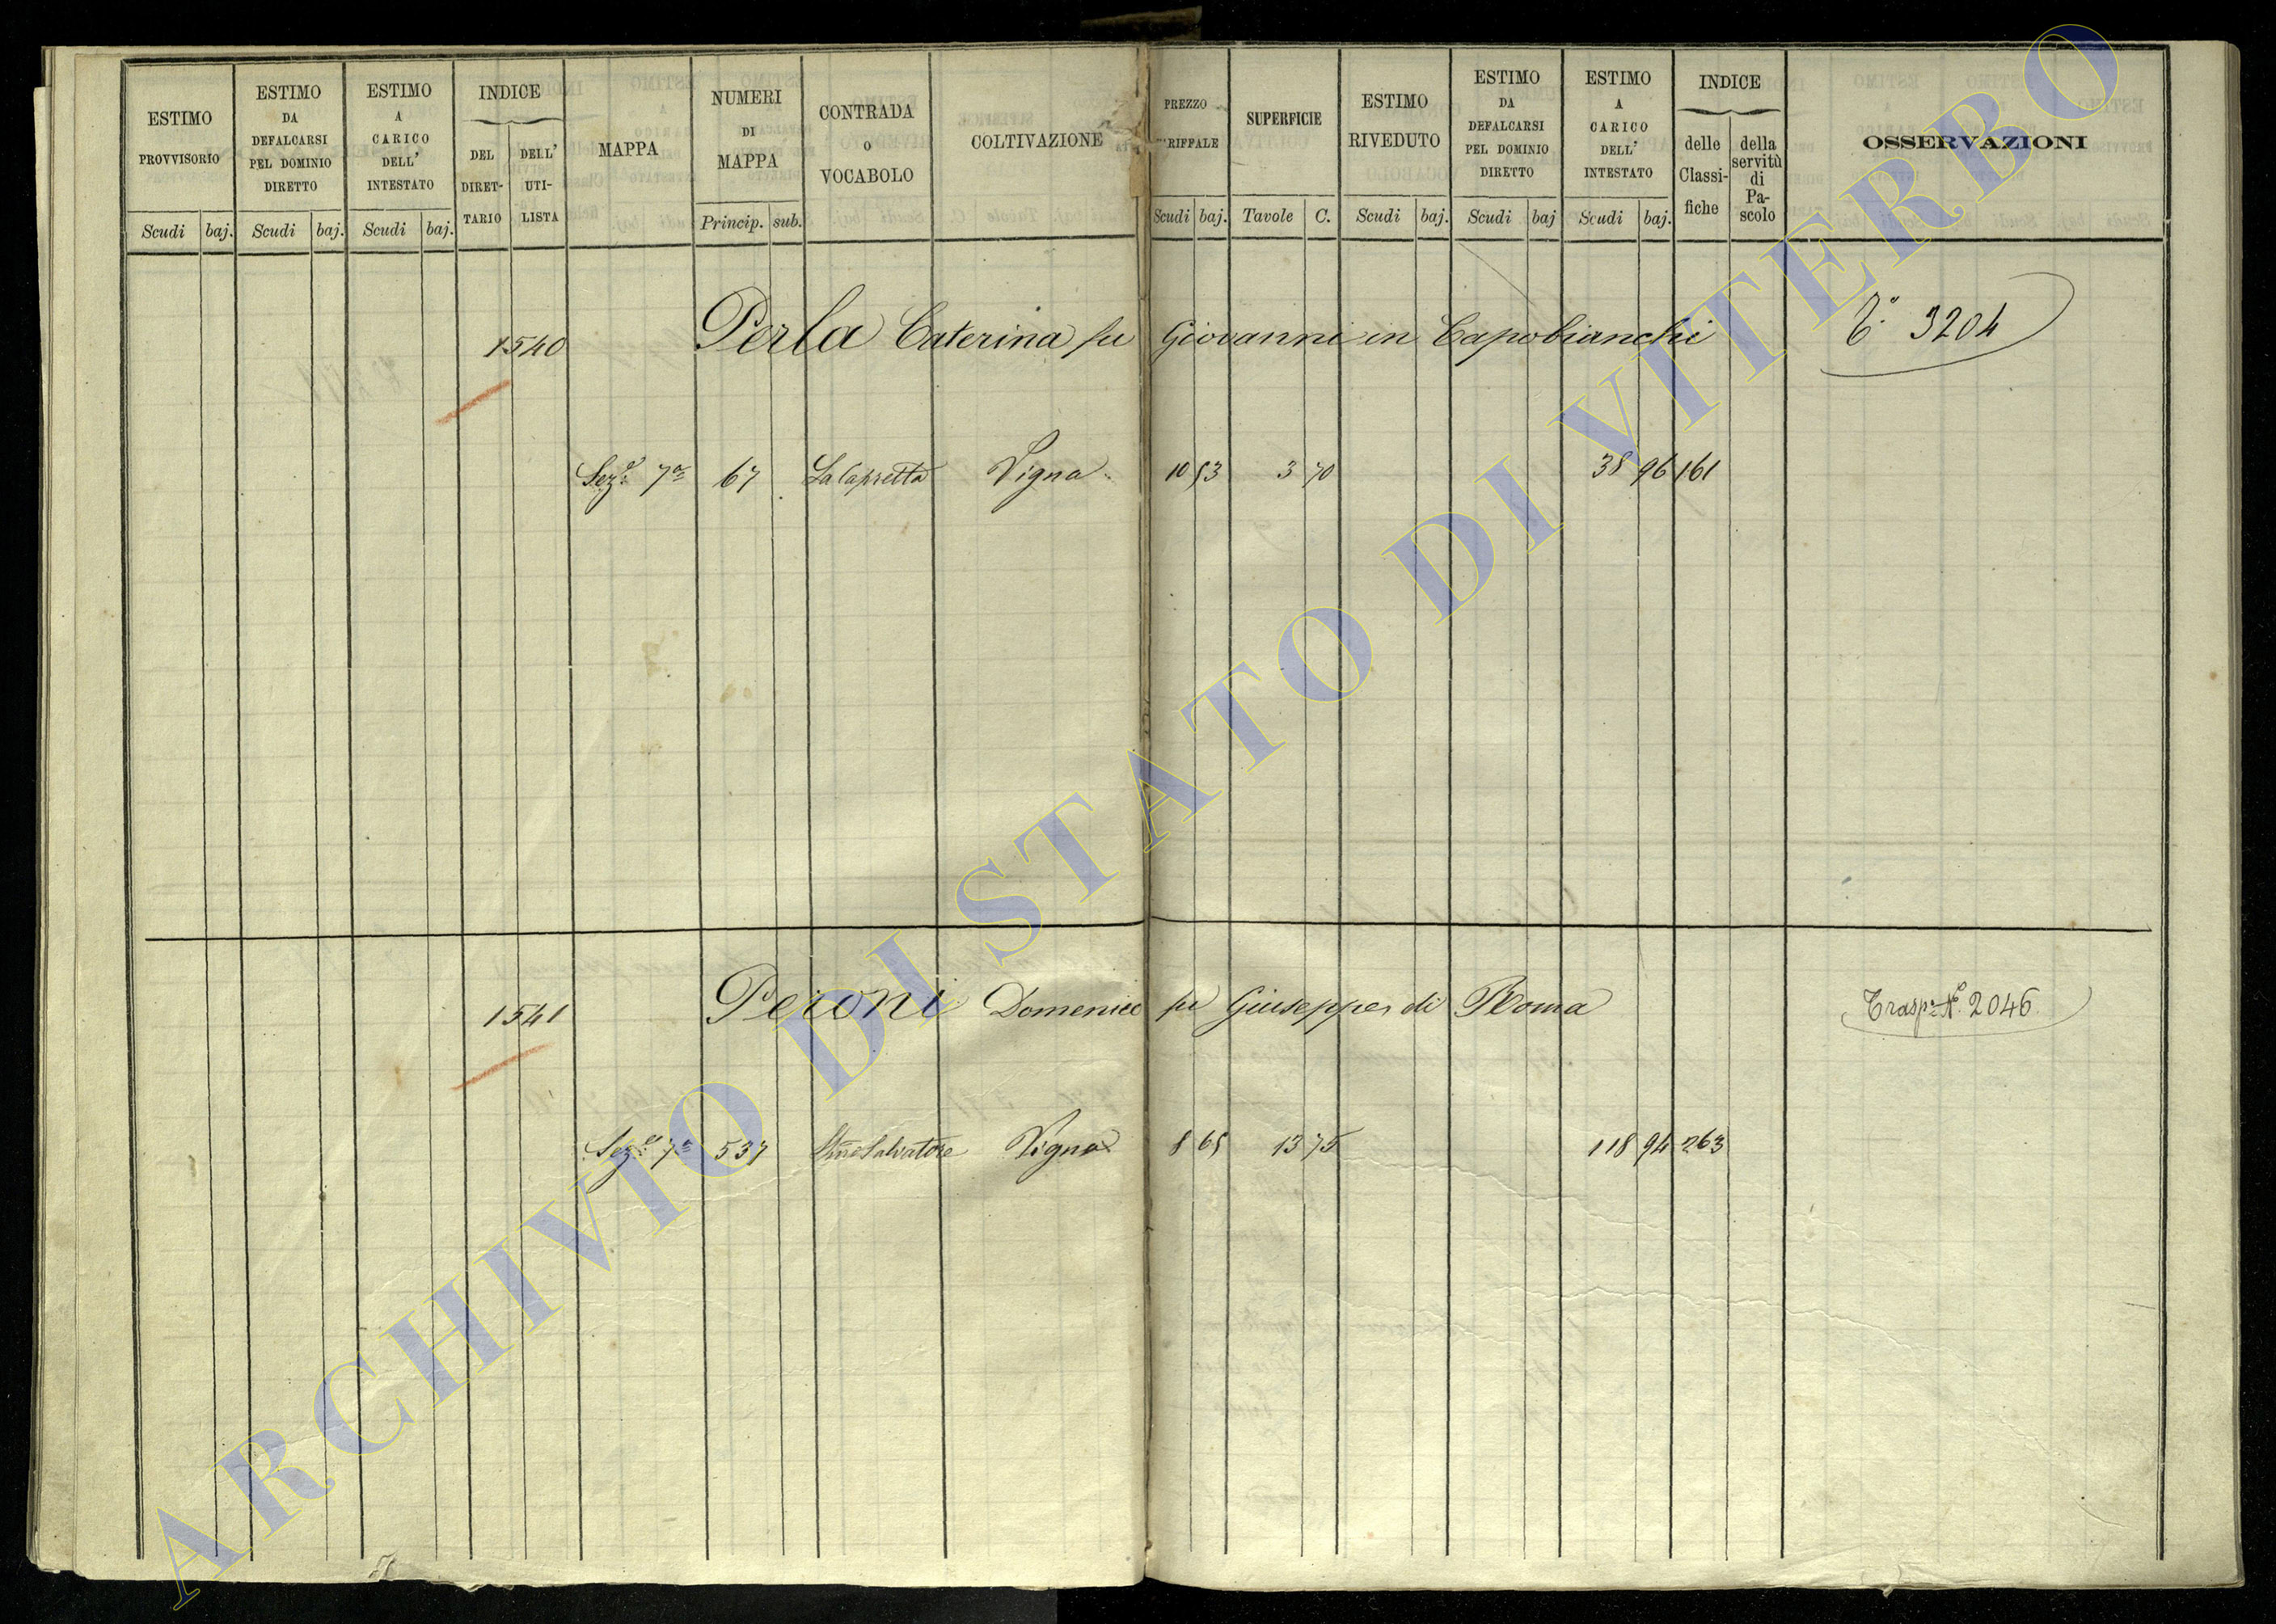 ESTIMO PROVVISORIO
Scudi baj.
ESTIMO DA DEFALCARSI PEL DOMINIO DIRETTO
Scudi baj.
ESTIMO A CARICO DELL' INTESTATO
Scudi baj.
INDICE
DEL DIRET- TARIO
DELL' UTI- LISTA
MAPPA
NUMERI DI MAPPA
Princip. sub.
CONTRADA O VOCABOLO
COLTIVAZIONE
PREZZO
Scudi baj.
SUPERFICIE
Tavole C.
ESTIMO RIVEDUTO
Scudi baj.
ESTIMO DA DEFALCARSI PEL DOMINIO DIRETTO
Scudi baj
ESTIMO A CARICO DELL' INTESTATO
Scudi baj.
INDICE
delle Classi- fiche
della servitù di Pa- scolo
OSSERVAZIONI
1540 Perla Caterina fu Giovanni in Capobianchi T.° 3204
Sez.e 7a 67 Vigna 10 53 3 70 38 96 161
1541 Peroni Domenico fu Giuseppe di Roma Trasp. N.° 2046
Sez.e 7a 537 Vigna 8 65 13 75 118 94 263
ARCHIVIO DI STATO DI VITERBO